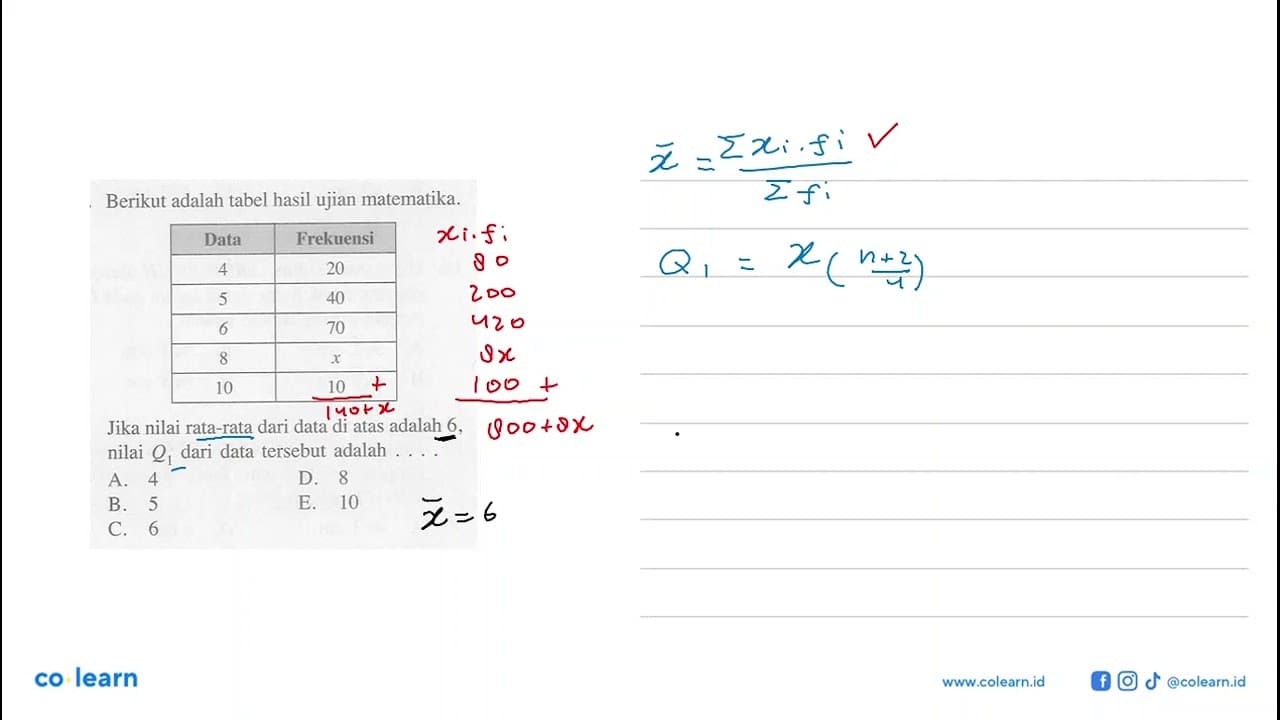 Berikut adalah tabel hasil ujian matematika.
Data Frekuensi
4 20
5 40
6 70
8 x
10 10 +
140+x
xi.fi
80
200
420
8x
100 +
800+8x
Jika nilai rata-rata dari data di atas adalah 6,
nilai Q₁ dari data tersebut adalah . . . .
A. 4 D. 8
B. 5 E. 10
C. 6
x̄ = 6
x̄ = Σ xi.fi / Σ fi ✓
Q₁ = x (n+2/4)
co learn
www.colearn.id
@colearn.id